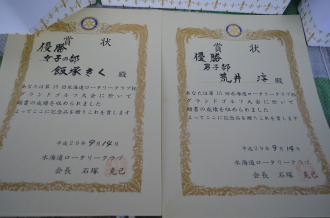 賞状
優勝
女子の部
飯承きく 殿
あなたは第15回水海道ロータリークラブ杯
グランドゴルフ大会に於いて
頭書の成績を収められました
よってここに記念品を贈りこれを賞します
平成29年9月14日
水海道ロータリークラブ
会長 石塚 克己
賞状
優勝
男子部
荒井 殿
あなたは第15回水海道ロータリークラブ杯
グランドゴルフ大会に於いて
頭書の成績を収められました
よってここに記念品を贈りこれを賞します
平成29年9月14日
水海道ロータリークラブ
会長 石塚 克己